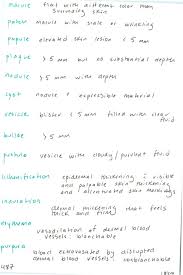 macule flat with different color than
surrounding skin
patch macule with scale or wrinkling
papule elevated skin lesion < 5 mm
plaque > 5 mm but no substantial depth
nodule > 5 mm with depth
cyst nodule + expressible material
vesicle blister < 5 mm filled with clear
fluid
bullae > 5 mm
pustule vesicle with cloudy/purulent fluid
lichenification epidermal thickening: visible
and palpable skin thickening
and accentuated skin markings
induration dermal thickening that feels
thick and firm
erythema vasodilation of dermal blood
vessels: blanchable
purpura blood extravasated by disrupted
blood vessels: nonblanchable
487